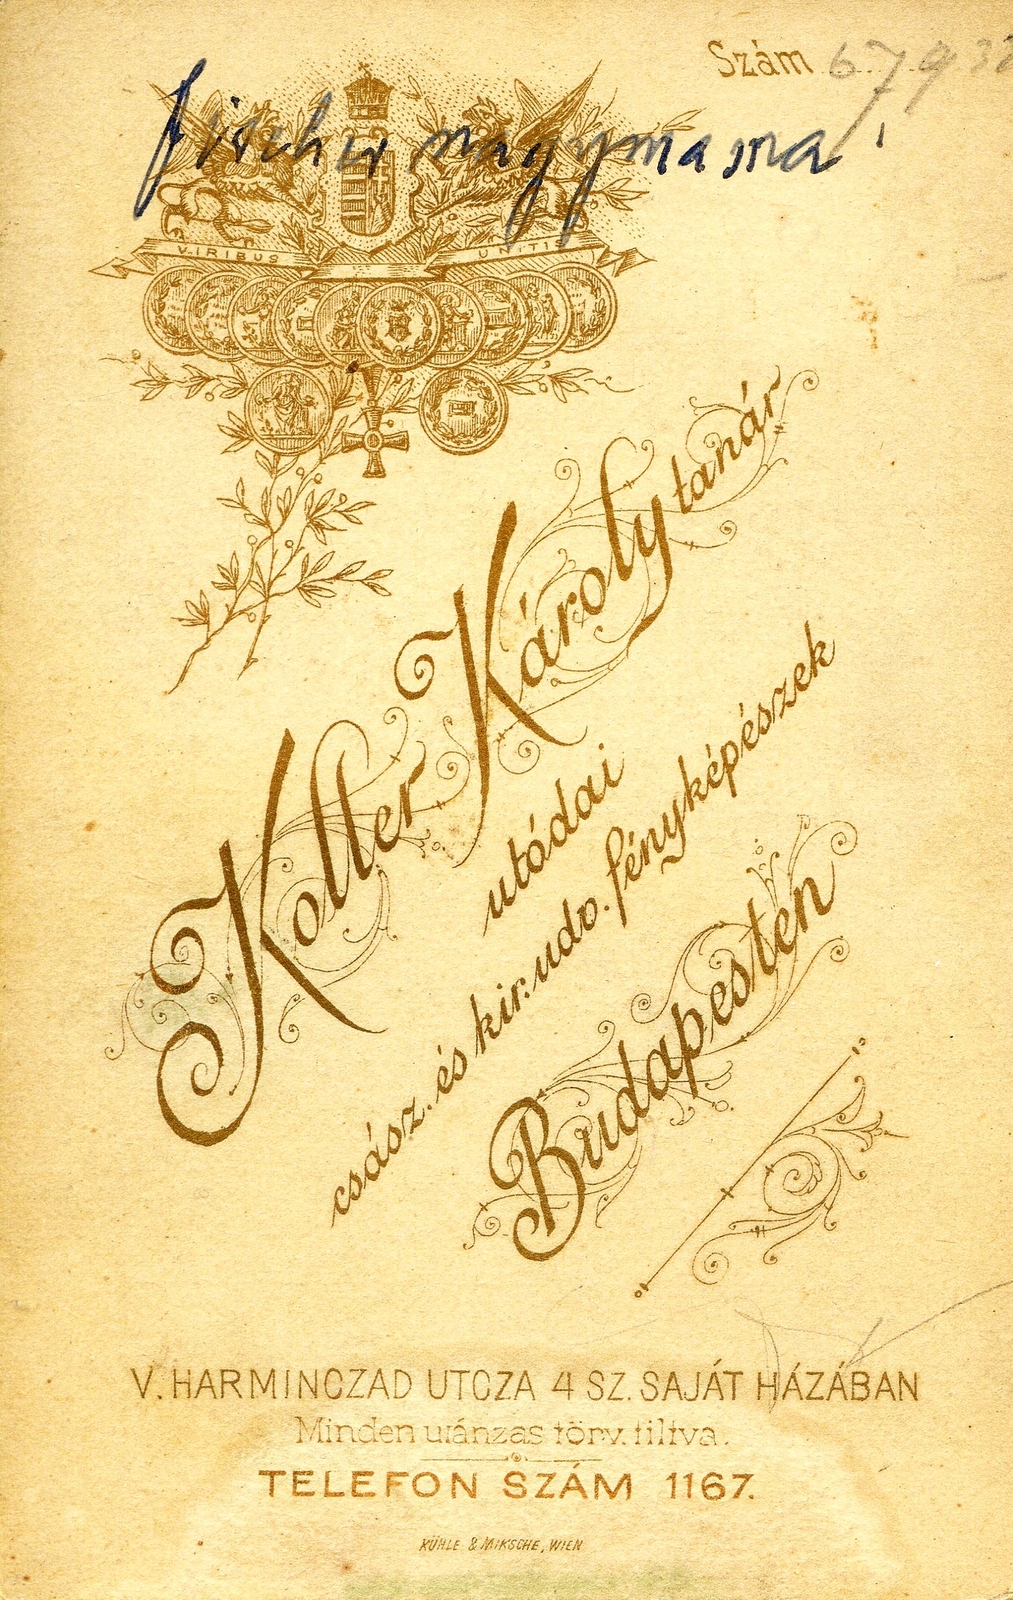 Szám 67932
Fischer nagymama
VIRIBUS UNITIS
Koller Károly tanár
utódai
csász. és kir. udv. fényképészek
Budapesten
V. HARMINCZAD UTCZA 4 SZ. SAJÁT HÁZÁBAN
Minden utánzas törv. tiltva.
TELEFON SZÁM 1167.
KÜHLE & MIKSCHE, WIEN